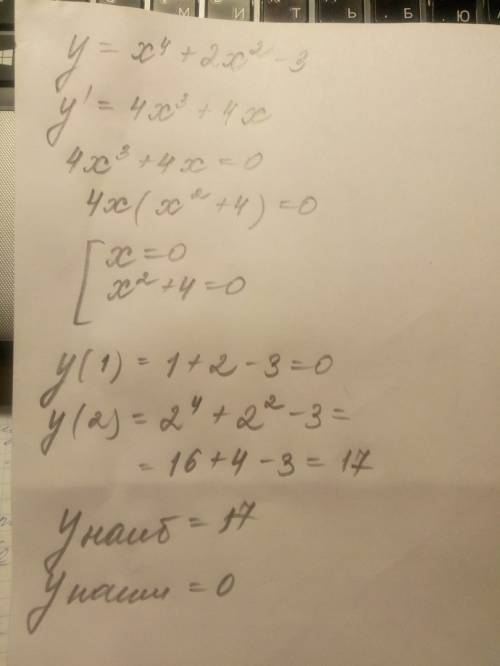 М И Т Ь . Б . Ю
y = x⁴ + 2x² - 3
y' = 4x³ + 4x
4x³ + 4x = 0
4x(x² + 4) = 0
[ x = 0
x² + 4 = 0
y(1) = 1 + 2 - 3 = 0
y(2) = 2⁴ + 2² - 3 =
= 16 + 4 - 3 = 17
y наиб = 17
y наим = 0